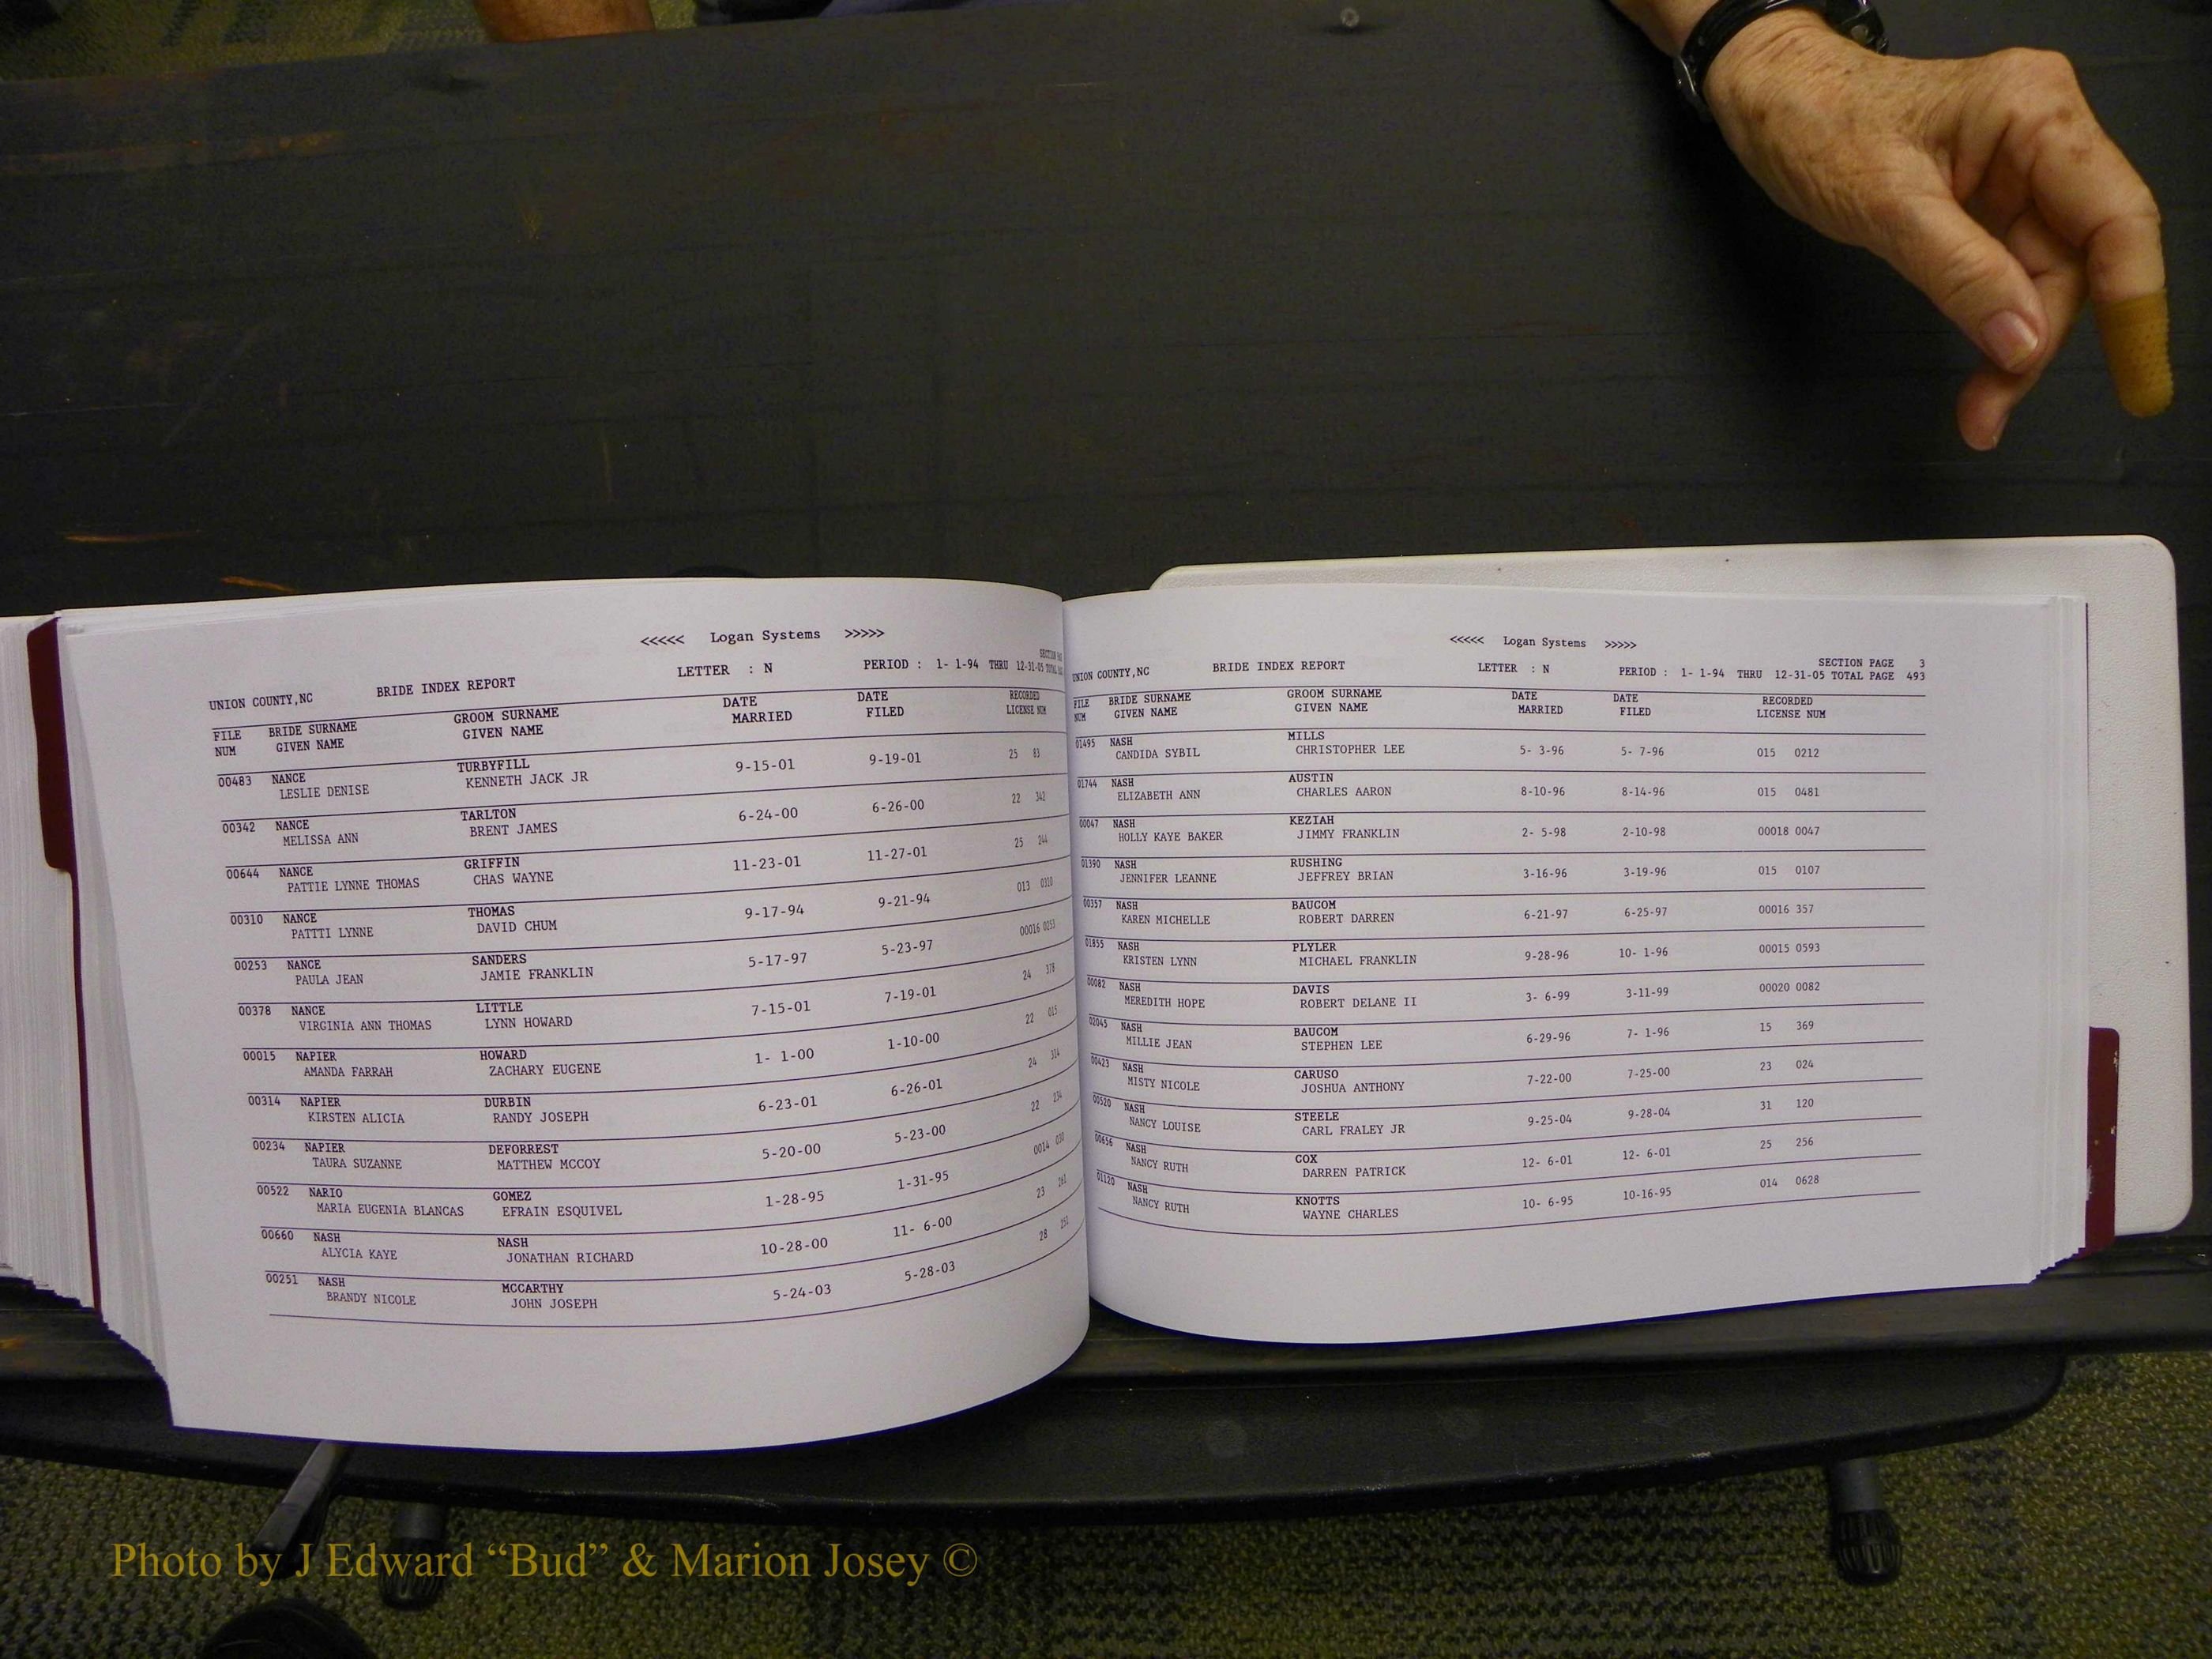 <<<<< Logan Systems >>>>>
UNION COUNTY,NC BRIDE INDEX REPORT LETTER : N PERIOD : 1- 1-94 THRU 12-31-05
FILE BRIDE SURNAME GROOM SURNAME DATE DATE RECORDED
NUM GIVEN NAME GIVEN NAME MARRIED FILED LICENSE NUM
00483 NANCE TURBYFILL 9-15-01 9-19-01 25 83
LESLIE DENISE KENNETH JACK JR
00342 NANCE TARLTON 6-24-00 6-26-00 22 342
MELISSA ANN BRENT JAMES
00644 NANCE GRIFFIN 11-23-01 11-27-01 25 244
PATTIE LYNNE THOMAS CHAS WAYNE
00310 NANCE THOMAS 9-17-94 9-21-94 013 0310
PATTTI LYNNE DAVID CHUM
00253 NANCE SANDERS 5-17-97 5-23-97 00016 0253
PAULA JEAN JAMIE FRANKLIN
00378 NANCE LITTLE 7-15-01 7-19-01 24 378
VIRGINIA ANN THOMAS LYNN HOWARD
00015 NAPIER HOWARD 1- 1-00 1-10-00 22 015
AMANDA FARRAH ZACHARY EUGENE
00314 NAPIER DURBIN 6-23-01 6-26-01 24 314
KIRSTEN ALICIA RANDY JOSEPH
00234 NAPIER DEFORREST 5-20-00 5-23-00 22 234
TAURA SUZANNE MATTHEW MCCOY
00522 NARIO GOMEZ 1-28-95 1-31-95 0014
MARIA EUGENIA BLANCAS EFRAIN ESQUIVEL
00660 NASH NASH 10-28-00 11- 6-00 23
ALYCIA KAYE JONATHAN RICHARD
00251 NASH MCCARTHY 5-24-03 5-28-03 28 251
BRANDY NICOLE JOHN JOSEPH
<<<<< Logan Systems >>>>>
SECTION PAGE 3
UNION COUNTY,NC BRIDE INDEX REPORT LETTER : N PERIOD : 1- 1-94 THRU 12-31-05 TOTAL PAGE 493
FILE BRIDE SURNAME GROOM SURNAME DATE DATE RECORDED
NUM GIVEN NAME GIVEN NAME MARRIED FILED LICENSE NUM
01495 NASH MILLS 5- 3-96 5- 7-96 015 0212
CANDIDA SYBIL CHRISTOPHER LEE
01744 NASH AUSTIN 8-10-96 8-14-96 015 0481
ELIZABETH ANN CHARLES AARON
00047 NASH KEZIAH 2- 5-98 2-10-98 00018 0047
HOLLY KAYE BAKER JIMMY FRANKLIN
01390 NASH RUSHING 3-16-96 3-19-96 015 0107
JENNIFER LEANNE JEFFREY BRIAN
00357 NASH BAUCOM 6-21-97 6-25-97 00016 357
KAREN MICHELLE ROBERT DARREN
01855 NASH PLYLER 9-28-96 10- 1-96 00015 0593
KRISTEN LYNN MICHAEL FRANKLIN
00082 NASH DAVIS 3- 6-99 3-11-99 00020 0082
MEREDITH HOPE ROBERT DELANE II
02045 NASH BAUCOM 6-29-96 7- 1-96 15 369
MILLIE JEAN STEPHEN LEE
00423 NASH CARUSO 7-22-00 7-25-00 23 024
MISTY NICOLE JOSHUA ANTHONY
00520 NASH STEELE 9-25-04 9-28-04 31 120
NANCY LOUISE CARL FRALEY JR
00656 NASH COX 12- 6-01 12- 6-01 25 256
NANCY RUTH DARREN PATRICK
01120 NASH KNOTTS 10- 6-95 10-16-95 014 0628
NANCY RUTH WAYNE CHARLES
Photo by J Edward “Bud” & Marion Josey ©